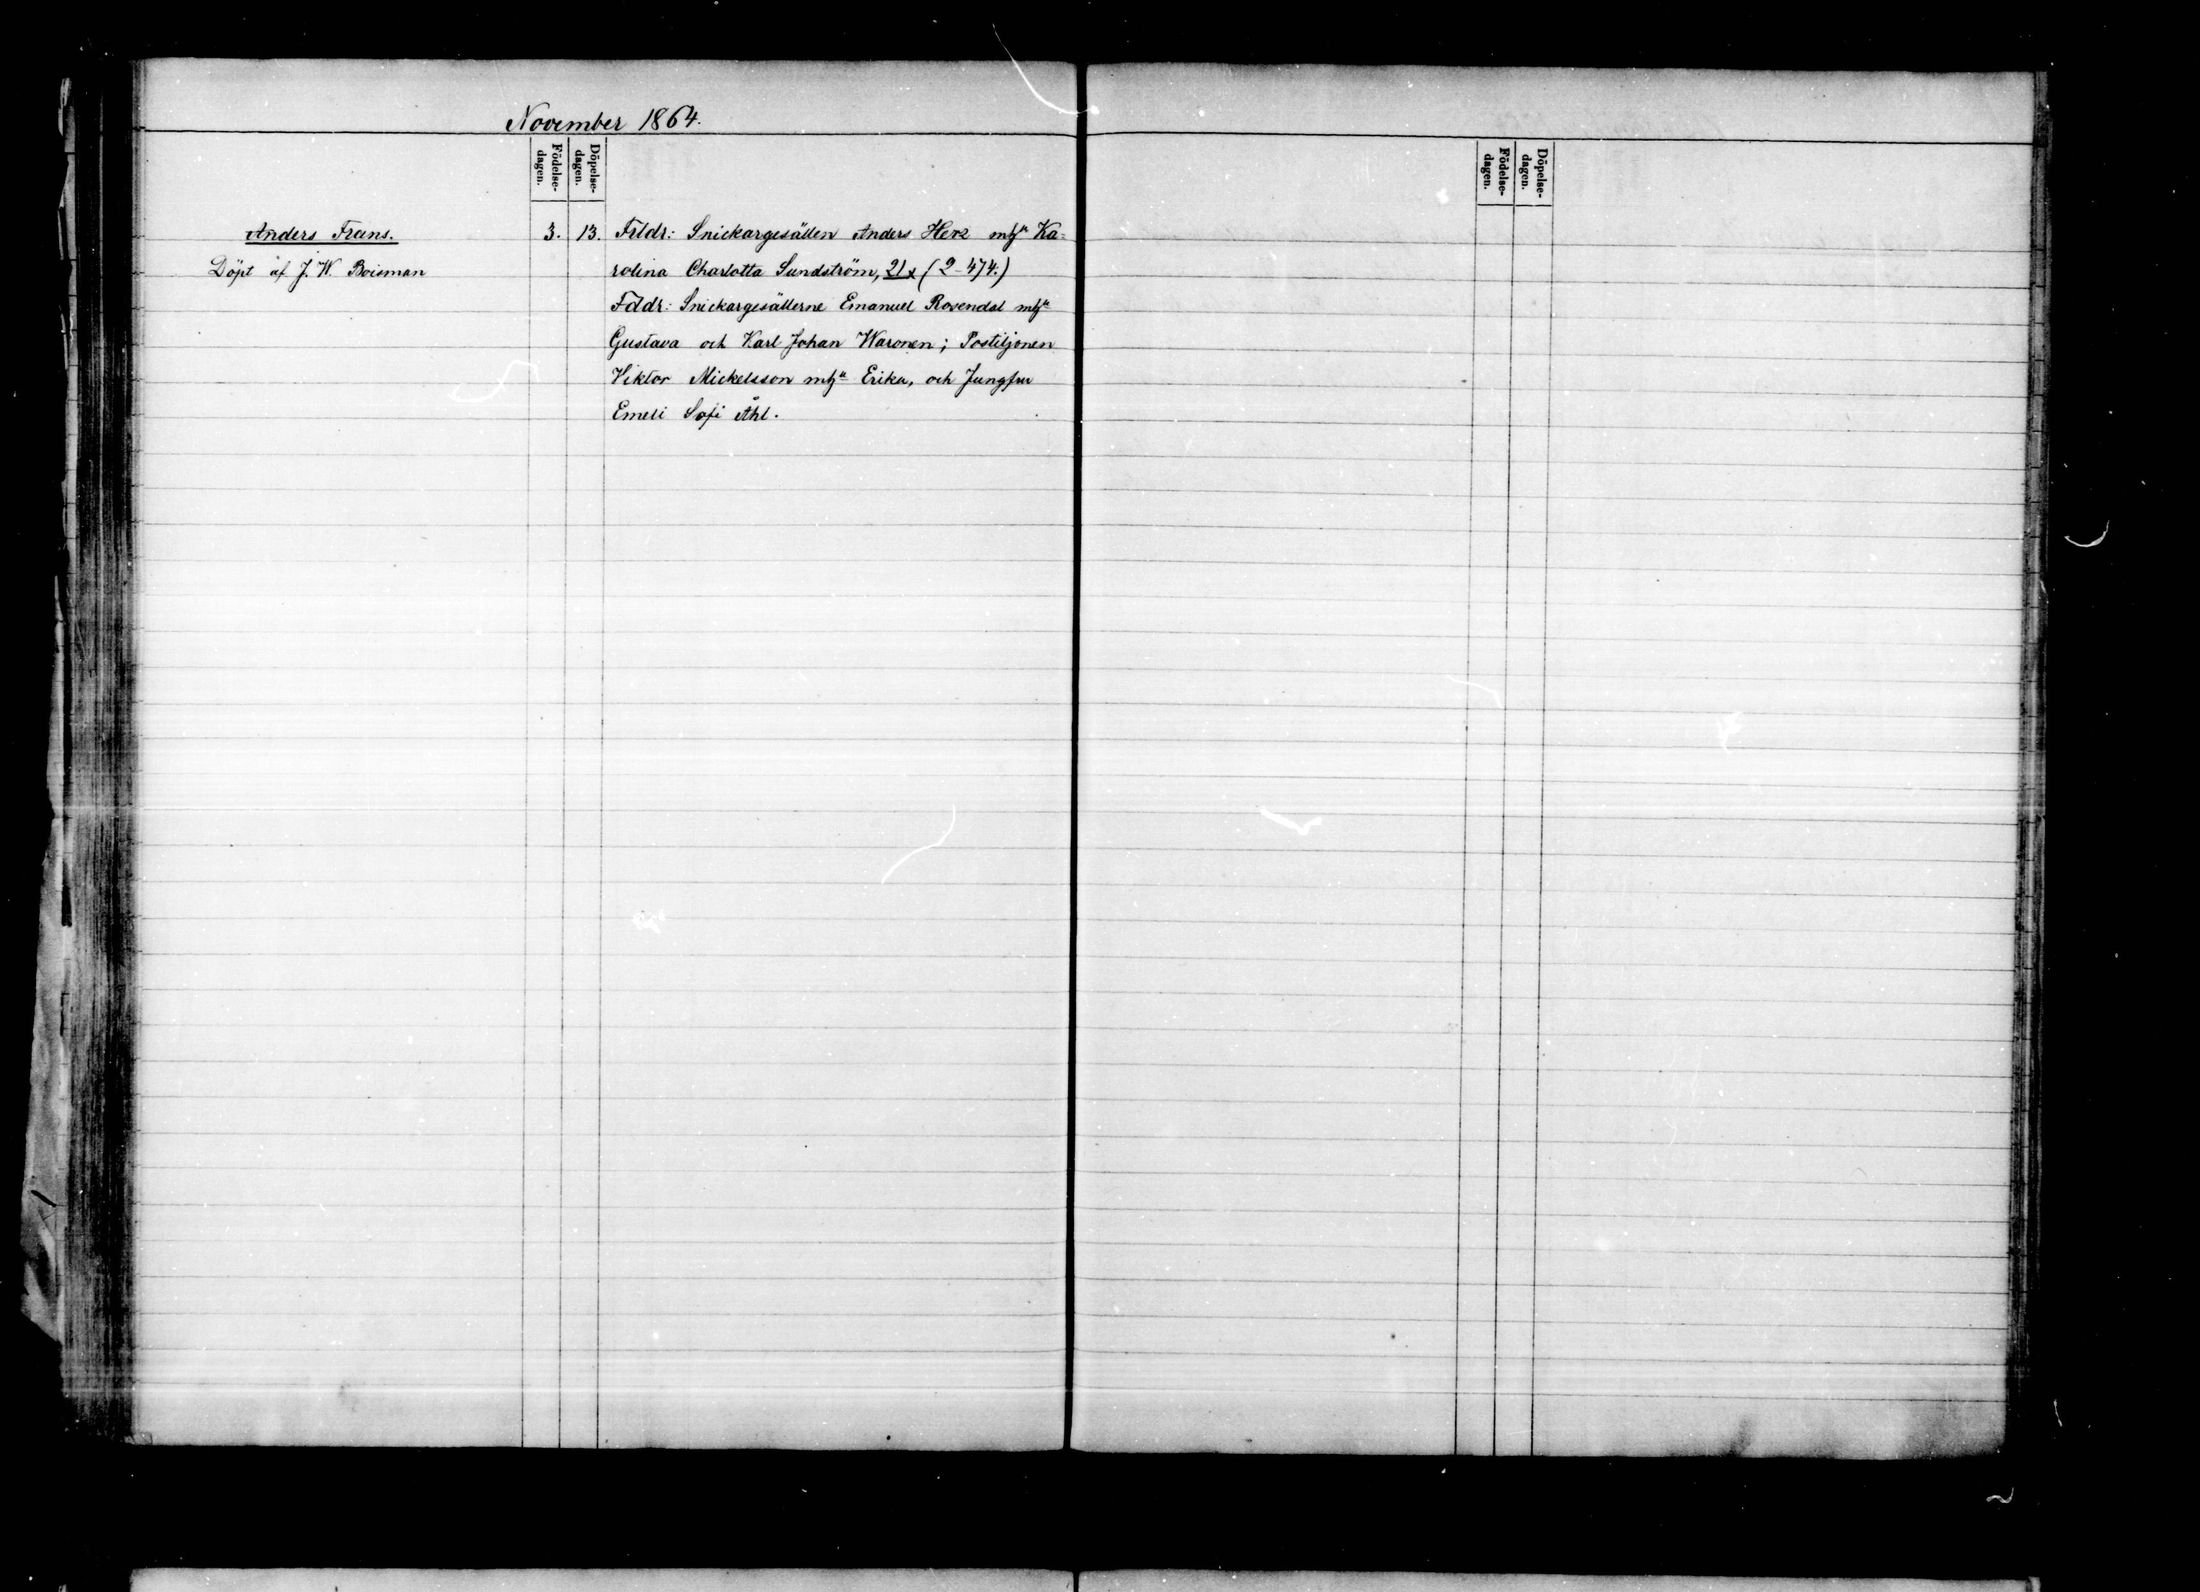 November 1864.
Födelse-
dagen.
Döpelse-
dagen.
Anders Frans. 3. 13. Frldr: Snickargesällen Anders Herz mh Ka-
Döpt af J. W. Boisman rolina Charlotta Sundström, 21 (2-474.)
Fddr: Snickargesällerne Emanuel Rosendal
Gustava och Karl Johan Waronen; Postiljonen
Viktor Mickelsson Erika, och Jungfru
Emeli Sofi Åhl.
Födelse-
dagen.
Döpelse-
dagen.